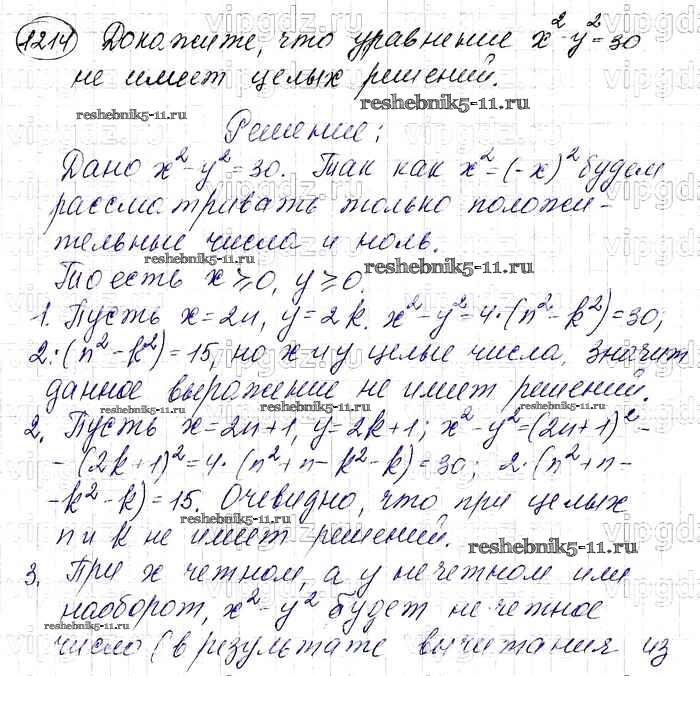 1214 Докажите, что уравнение x²-y²=30
не имеет целых решений.
reshebnik5-11.ru reshebnik5-11.ru
Решение:
Дано x²-y²=30. Так как x²=(-x)² будем
рассматривать только положи-
тельные числа и ноль.
reshebnik5-11.ru
То есть x⩾0, y⩾0.
reshebnik5-11.ru
1. Пусть x=2n, y=2k. x²-y²=4·(n²-k²)=30;
2·(n²-k²)=15, но x и y целые числа, значит
данное выражение не имеет решений.
reshebnik5-11.ru reshebnik5-11.ru reshebnik5-11.ru
2. Пусть x=2n+1, y=2k+1; x²-y²=(2n+1)²-
-(2k+1)²=4·(n²+n-k²-k)=30; 2·(n²+n-
-k²-k)=15. Очевидно, что при целых
reshebnik5-11.ru
n и k не имеет решений.
reshebnik5-11.ru
3. При x четном, а y нечетном или
наоборот, x²-y² будет нечетное
reshebnik5-11.ru reshebnik5-11.ru reshebnik5-11.ru
число (в результате вычитания из